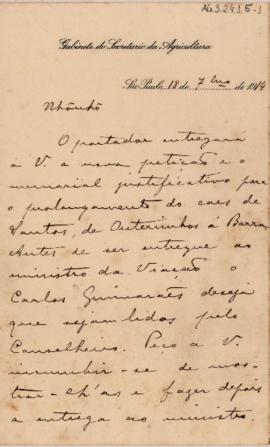 A63.2415-1
Gabinete do Secretario da Agricultura
São Paulo, 18 de 7bro de 1914
Nhônhô
O portador entregará
a V. a nova petição e o
memorial justificativo para
o prolongamento do caes de
Santos, de Outeirinhos á Barra.
Antes de ser entregue ao
ministro da Viação o
Carlos Guimarães deseja
que sejam lidos pelo
Conselheiro. Peço a V.
incumbir-se de mos-
trar-lh'as e fazer depois
a entrega ao ministro.